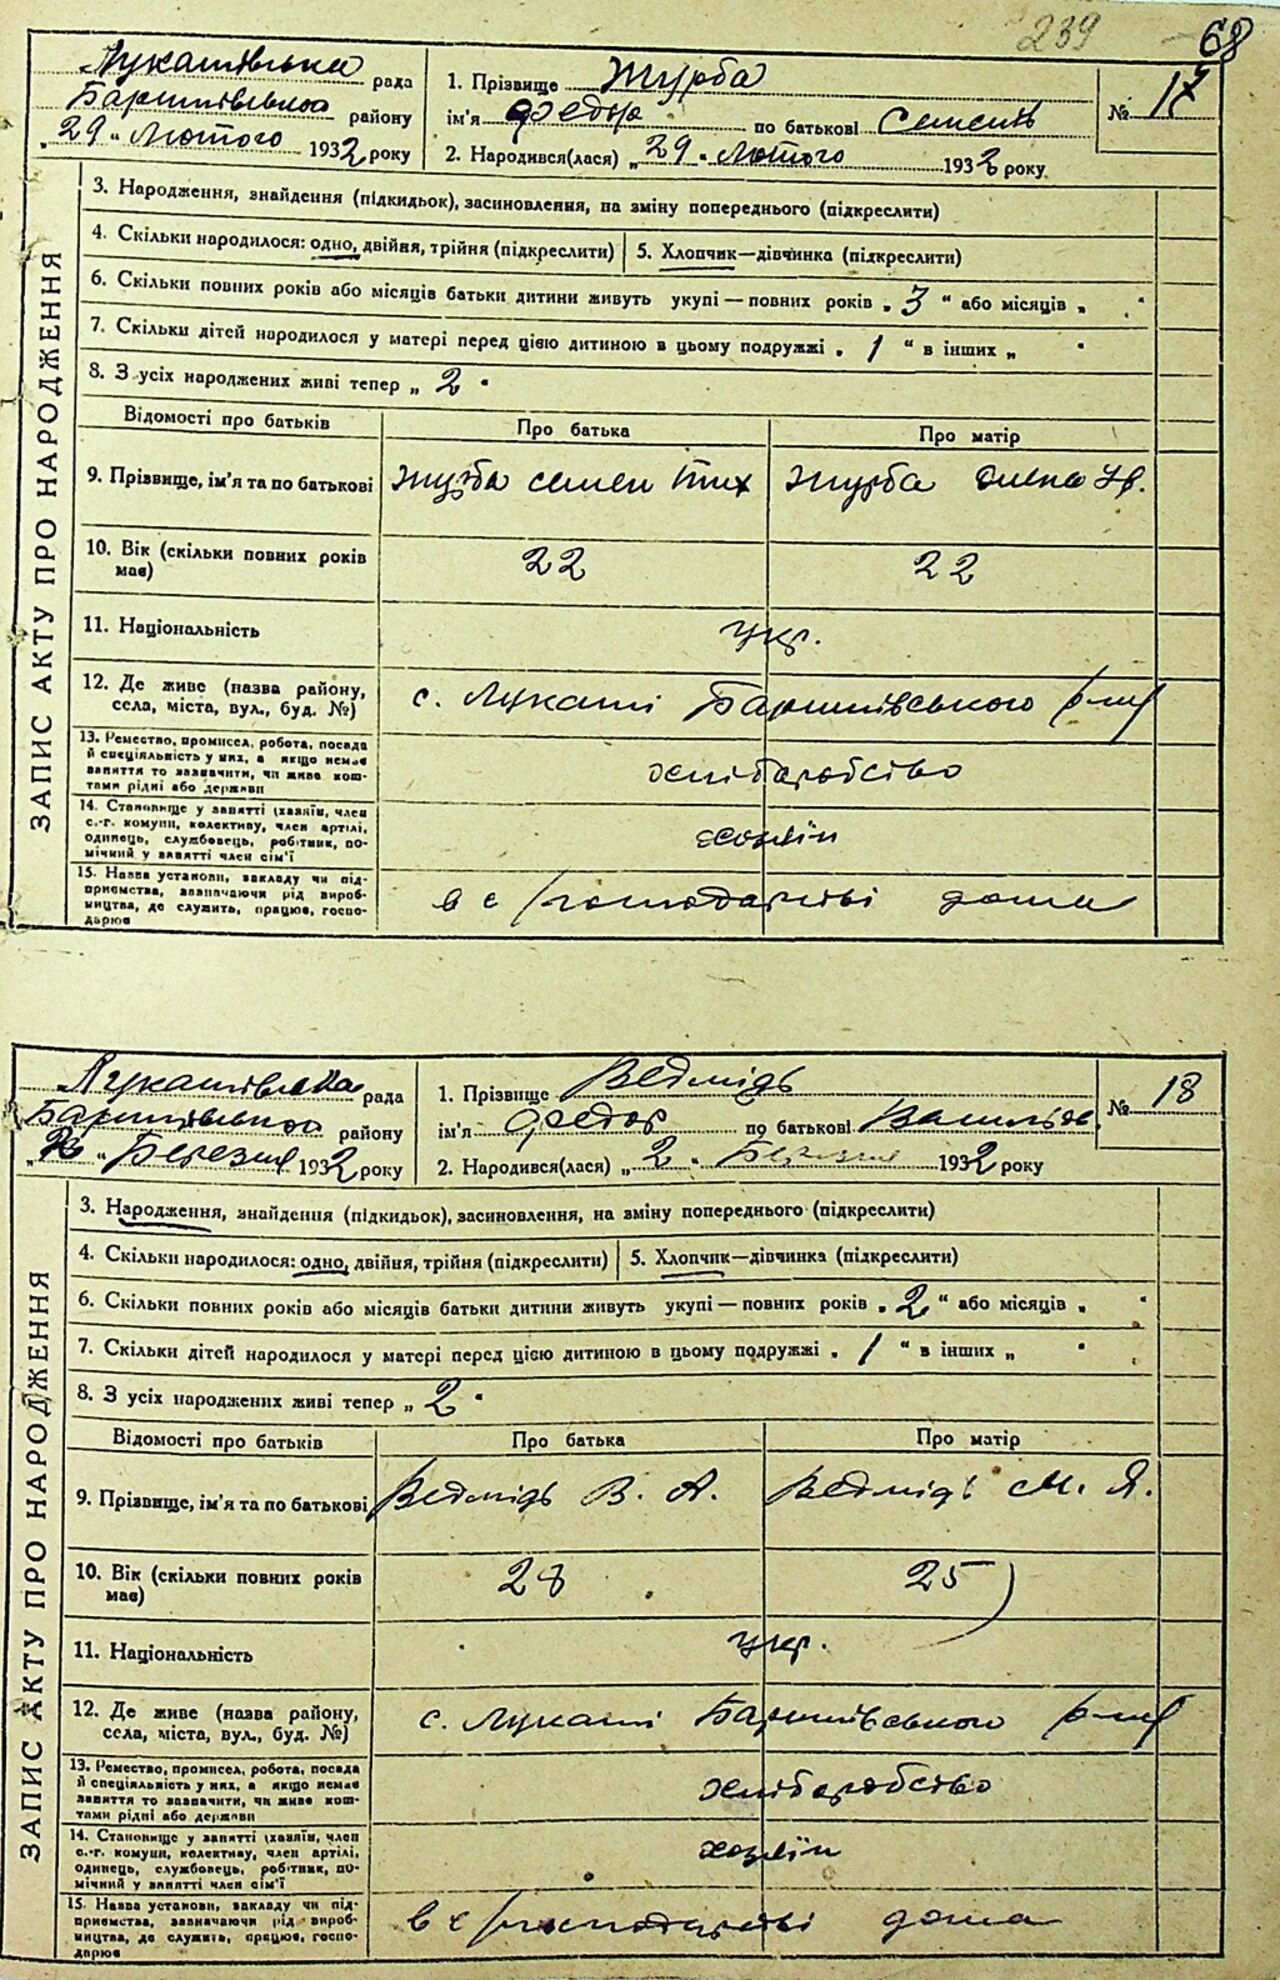 239 68
Лукашівська рада
Баришівського району
„29“ Лютого 1932 року
1. Прізвище Журба
ім'я Федор по батькові Семенів
2. Народився(лася) „29“ Лютого 1932 року
№ 17
ЗАПИС АКТУ ПРО НАРОДЖЕННЯ
3. Народження, знайдення (підкидьок), засиновлення, на зміну попереднього (підкреслити)
4. Скільки народилося: одно, двійня, трійня (підкреслити) 5. Хлопчик—дівчинка (підкреслити)
6. Скільки повних років або місяців батьки дитини живуть укупі — повних років „3“ або місяців „ “
7. Скільки дітей народилося у матері перед цією дитиною в цьому подружжі „1“ в інших „ “
8. З усіх народжених живі тепер „2“
Відомості про батьків Про батька Про матір
9. Прізвище, ім'я та по батькові Журба Семен Тих Журба Олена
10. Вік (скільки повних років має) 22 22
11. Національність укр.
12. Де живе (назва району, села, міста, вул., буд. №) с. Лукаші Баришівського р-ну
13. Ремество, промисел, робота, посада
й спеціяльність у них, а якщо немає
заняття то зазначити, чи живе кош-
тами рідні або держави
хліборобство
14. Становище у занятті (хазяїн, член
с.-г. комуни, колективу, член артілі,
одинець, службовець, робітник, по-
мічний у занятті член сім'ї
хозяїн
15. Назва установи, закладу чи під-
приємства, зазначаючи рід вироб-
ництва, де служить, працює, госпо-
дарює
в с/господарстві дома
Лукашівська рада
Баришівського району
„2“ Березня 1932 року
1. Прізвище Ведмідь
ім'я Федор по батькові Васильов.
2. Народився(лася) „2“ Березня 1932 року
№ 18
ЗАПИС АКТУ ПРО НАРОДЖЕННЯ
3. Народження, знайдення (підкидьок), засиновлення, на зміну попереднього (підкреслити)
4. Скільки народилося: одно, двійня, трійня (підкреслити) 5. Хлопчик—дівчинка (підкреслити)
6. Скільки повних років або місяців батьки дитини живуть укупі — повних років „2“ або місяців „ “
7. Скільки дітей народилося у матері перед цією дитиною в цьому подружжі „1“ в інших „ “
8. З усіх народжених живі тепер „2“
Відомості про батьків Про батька Про матір
9. Прізвище, ім'я та по батькові Ведмідь В. А. Ведмідь М. Я.
10. Вік (скільки повних років має) 28 25
11. Національність укр.
12. Де живе (назва району, села, міста, вул., буд. №) с. Лукаші Баришівського р-ну
13. Ремество, промисел, робота, посада
й спеціяльність у них, а якщо немає
заняття то зазначити, чи живе кош-
тами рідні або держави
хліборобство
14. Становище у занятті (хазяїн, член
с.-г. комуни, колективу, член артілі,
одинець, службовець, робітник, по-
мічний у занятті член сім'ї
хозяїн
15. Назва установи, закладу чи під-
приємства, зазначаючи рід вироб-
ництва, де служить, працює, госпо-
дарює
в с/господарстві дома